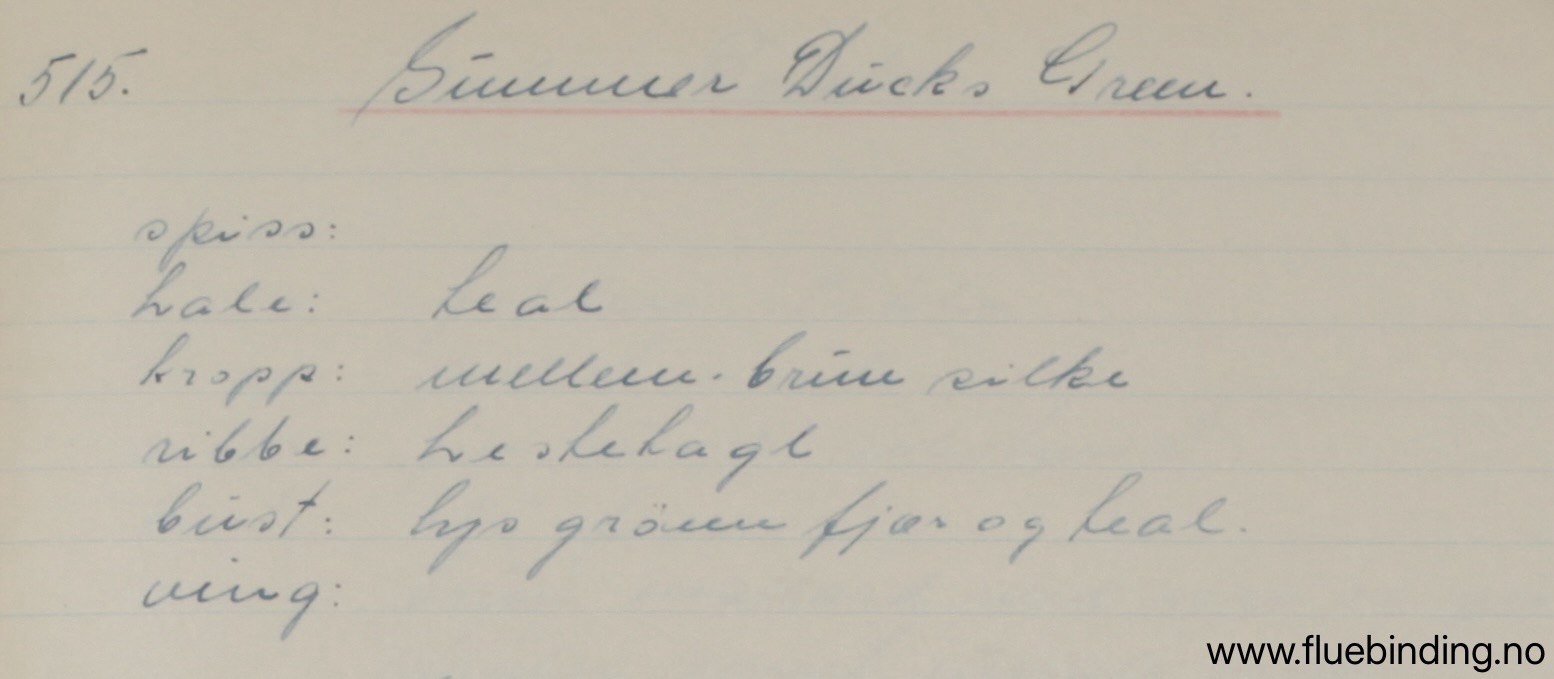 515. Summer Ducks Green.
spiss:
hale: teal
kropp: mellem-brun silke
ribbe: hestetagl
bust: lys grönn fjær og teal.
ving:
www.fluebinding.no